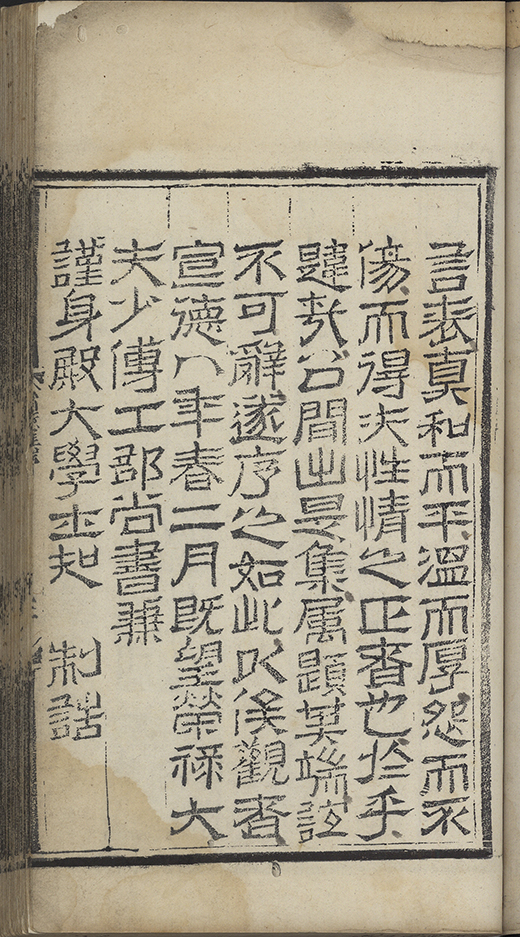 言表真和而平溫而厚怨而不
傷而得夫性情之正者也扵乎
韙哉公間出是集属題其端誼
不可辭遂序之如此以俟觀者
宣德八年春二月既望榮禄大
夫少傅工部尚書兼
謹身殿大學士知　制誥